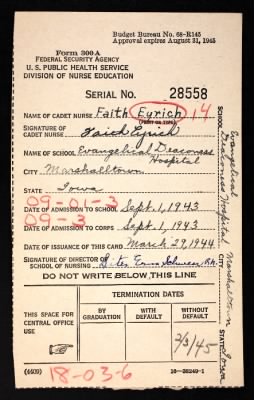 Budget Bureau No. 68-R145
Approval expires August 31, 1945
Form 300A
FEDERAL SECURITY AGENCY
U. S. PUBLIC HEALTH SERVICE
DIVISION OF NURSE EDUCATION
SERIAL No. 28558
NAME OF CADET NURSE Faith Eyrich 14
(PRINT OR TYPE)
SIGNATURE OF CADET NURSE Faith Eyrich
NAME OF SCHOOL Evangelical Deaconess Hospital
CITY Marshalltown
STATE Iowa
09-01-3
DATE OF ADMISSION TO SCHOOL Sept. 1, 1943
09-3
DATE OF ADMISSION TO CORPS Sept. 1, 1943
DATE OF ISSUANCE OF THIS CARD March 29, 1944
SIGNATURE OF DIRECTOR OF SCHOOL OF NURSING Sister R.N.
DO NOT WRITE BELOW THIS LINE
THIS SPACE FOR CENTRAL OFFICE USE
TERMINATION DATES
BY GRADUATION
WITH DEFAULT
WITHOUT DEFAULT
2/3/45
(4409)
18-03-6
16-38249-1
SCHOOL Evangelical Deaconess Hospital
CITY Marshalltown
STATE Iowa